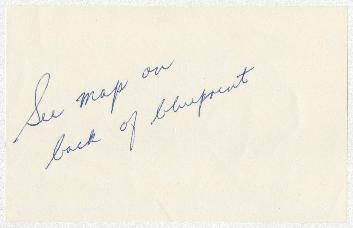 See map on
back of blueprint